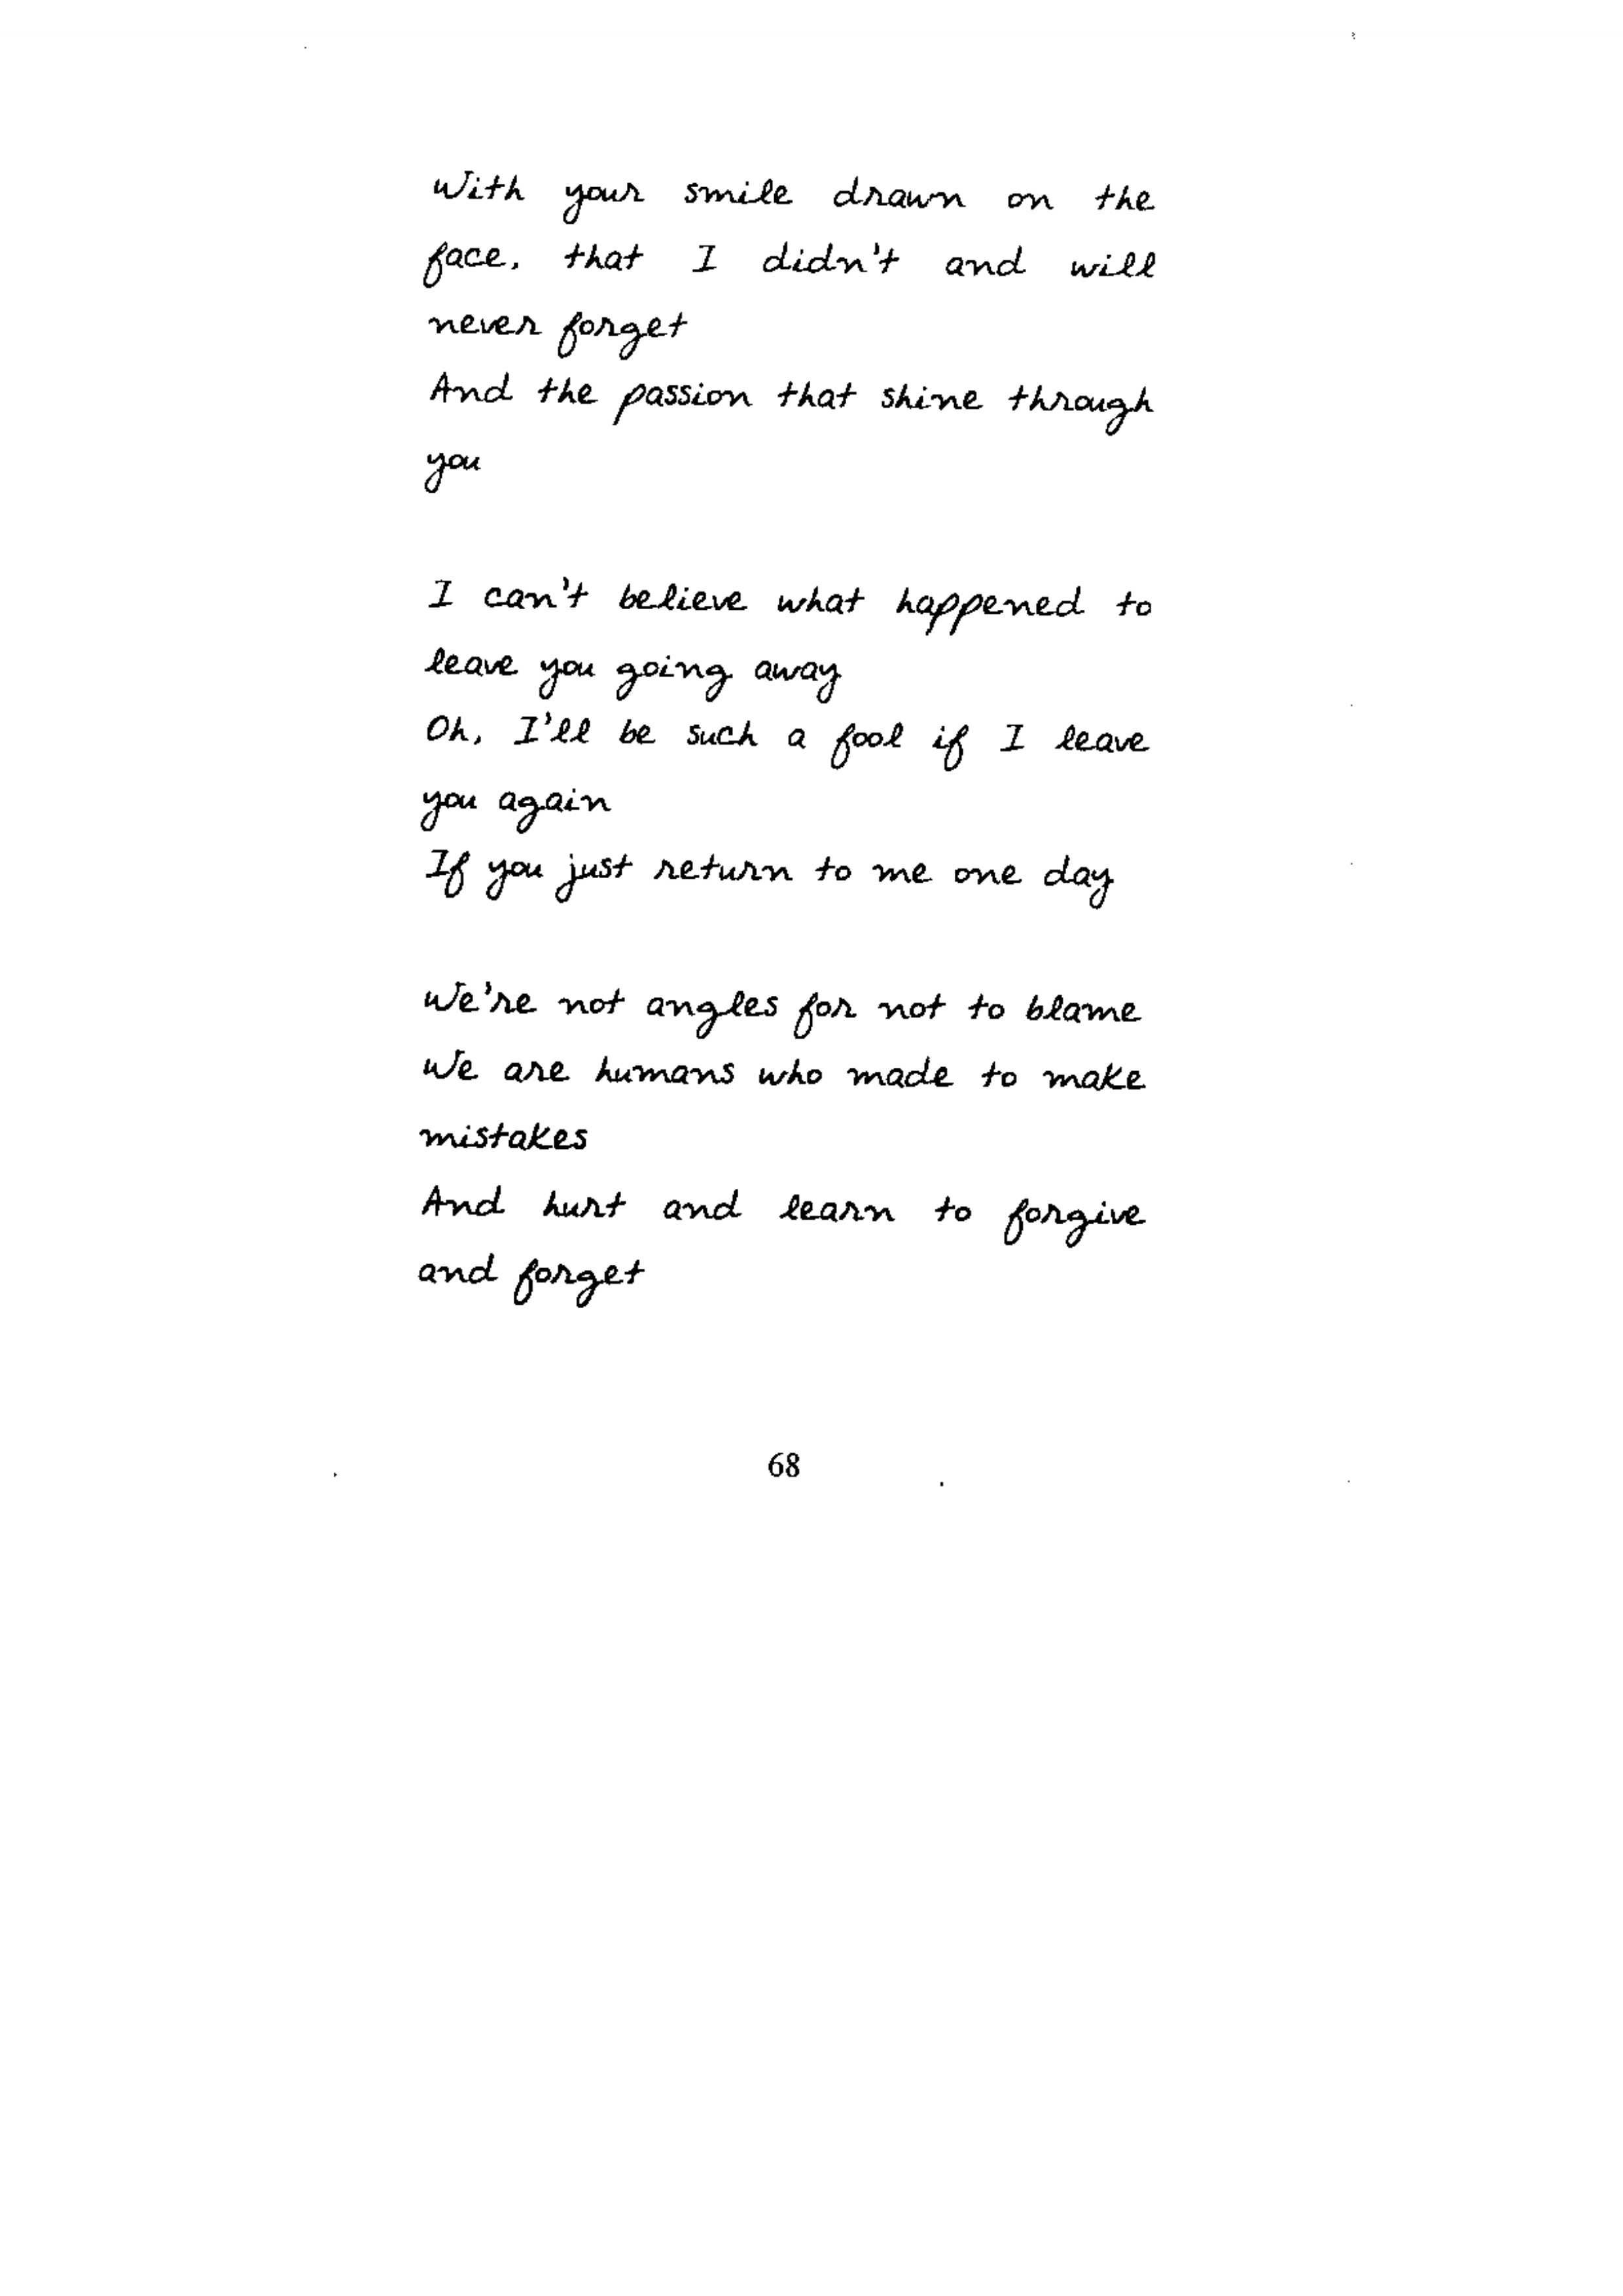 With your smile drawn on the
face, that I didn't and will
never forget
And the passion that shine through
you
I can't believe what happened to
leave you going away
Oh, I'll be such a fool if I leave
you again
If you just return to me one day
We're not angles for not to blame
We are humans who made to make
mistakes
And hurt and learn to forgive
and forget
68